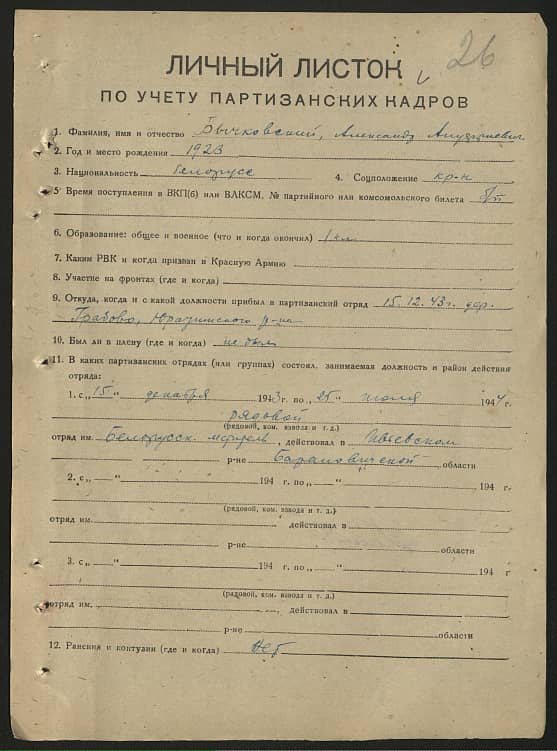 26
ЛИЧНЫЙ ЛИСТОК
ПО УЧЕТУ ПАРТИЗАНСКИХ КАДРОВ
1. Фамилия, имя и отчество Бычковский, Александр
2. Год и место рождения 1923
3. Национальность белорусс 4. Соцположение кр-н
5 Время поступления в ВКП(б) или ВЛКСМ, № партийного или комсомольского билета б/п
6. Образование: общее и военное (что и когда окончил) 1 кл.
7. Каким РВК и когда призван в Красную Армию
8. Участие на фронтах (где и когда)
9. Откуда, когда и с какой должности прибыл в партизанский отряд 15.12.43г. дер.
Грабово, Юратишского р-на
10. Был ли в плену (где и когда) не был
11. В каких партизанских отрядах (или группах) состоял, занимаемая должность и район действия
отряда:
1. с „15" декабря 1943г. по „25" июля 1944г.
рядовой
(рядовой, ком. взвода и т. д.)
отряд им. Белорусск. , действовал в Ивьевском
р-не Барановичской области
2. с „—" 194 г. по „—" 194 г.
(рядовой, ком. взвода и т. д.)
отряд им. действовал в
р-не области
3. с „—" 194 г. по „—" 194 г
(рядовой, ком. взвода и т. д.)
отряд им. , действовал в
р-не области
12. Ранения и контузии (где и когда) Нет